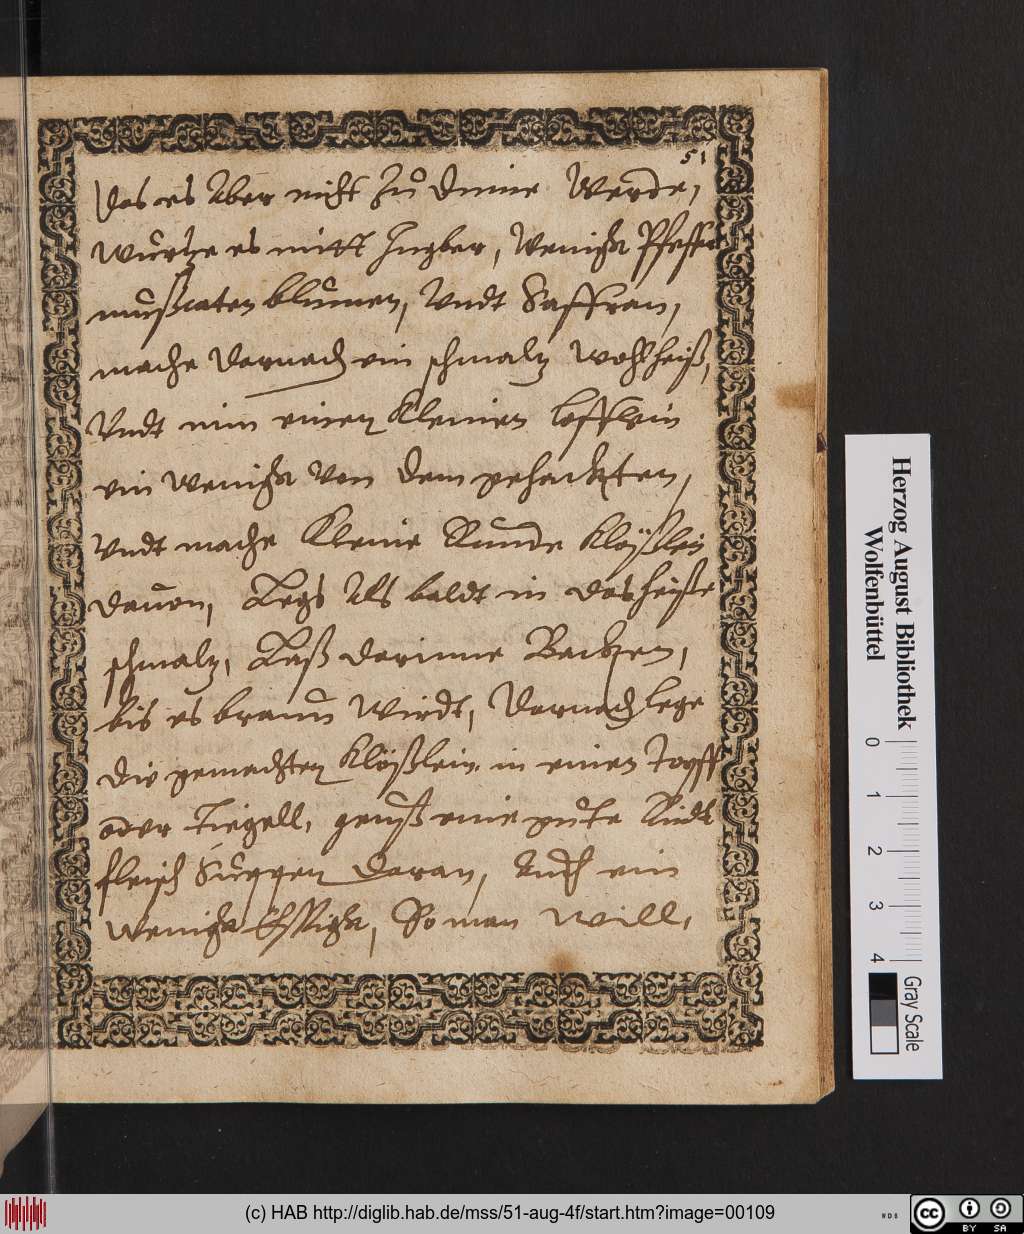 51
Das es Aber nicht Zu Dinne Werde,
wurtze es mitt Ingber, Weniga Pfeffer
mußcaten blumen, Vndt Saffran,
mache Darnach ein schmaltz wohl heiß,
Vndt nim einen Kleinen lefflein
ein weniga Von Dem gehackten,
Vndt mache Kleine Runde Klößlein
dauon, Legs Als baldt in das heiße
schmaltz, Laß darinne Backen,
bis es braun Wirdt, Darnach lege
die gemachten Klößlein in einen Topff
oder Tiegell, geuß eine gute Rindt
fleisch Suppen daran, Auch ein
weniga Eßiga, So man will,
Herzog August Bibliothek
Wolfenbüttel
0 1 2 3 4
Gray Scale
(c) HAB http://diglib.hab.de/mss/51-aug-4f/start.htm?image=00109
WDB
cc BY SA